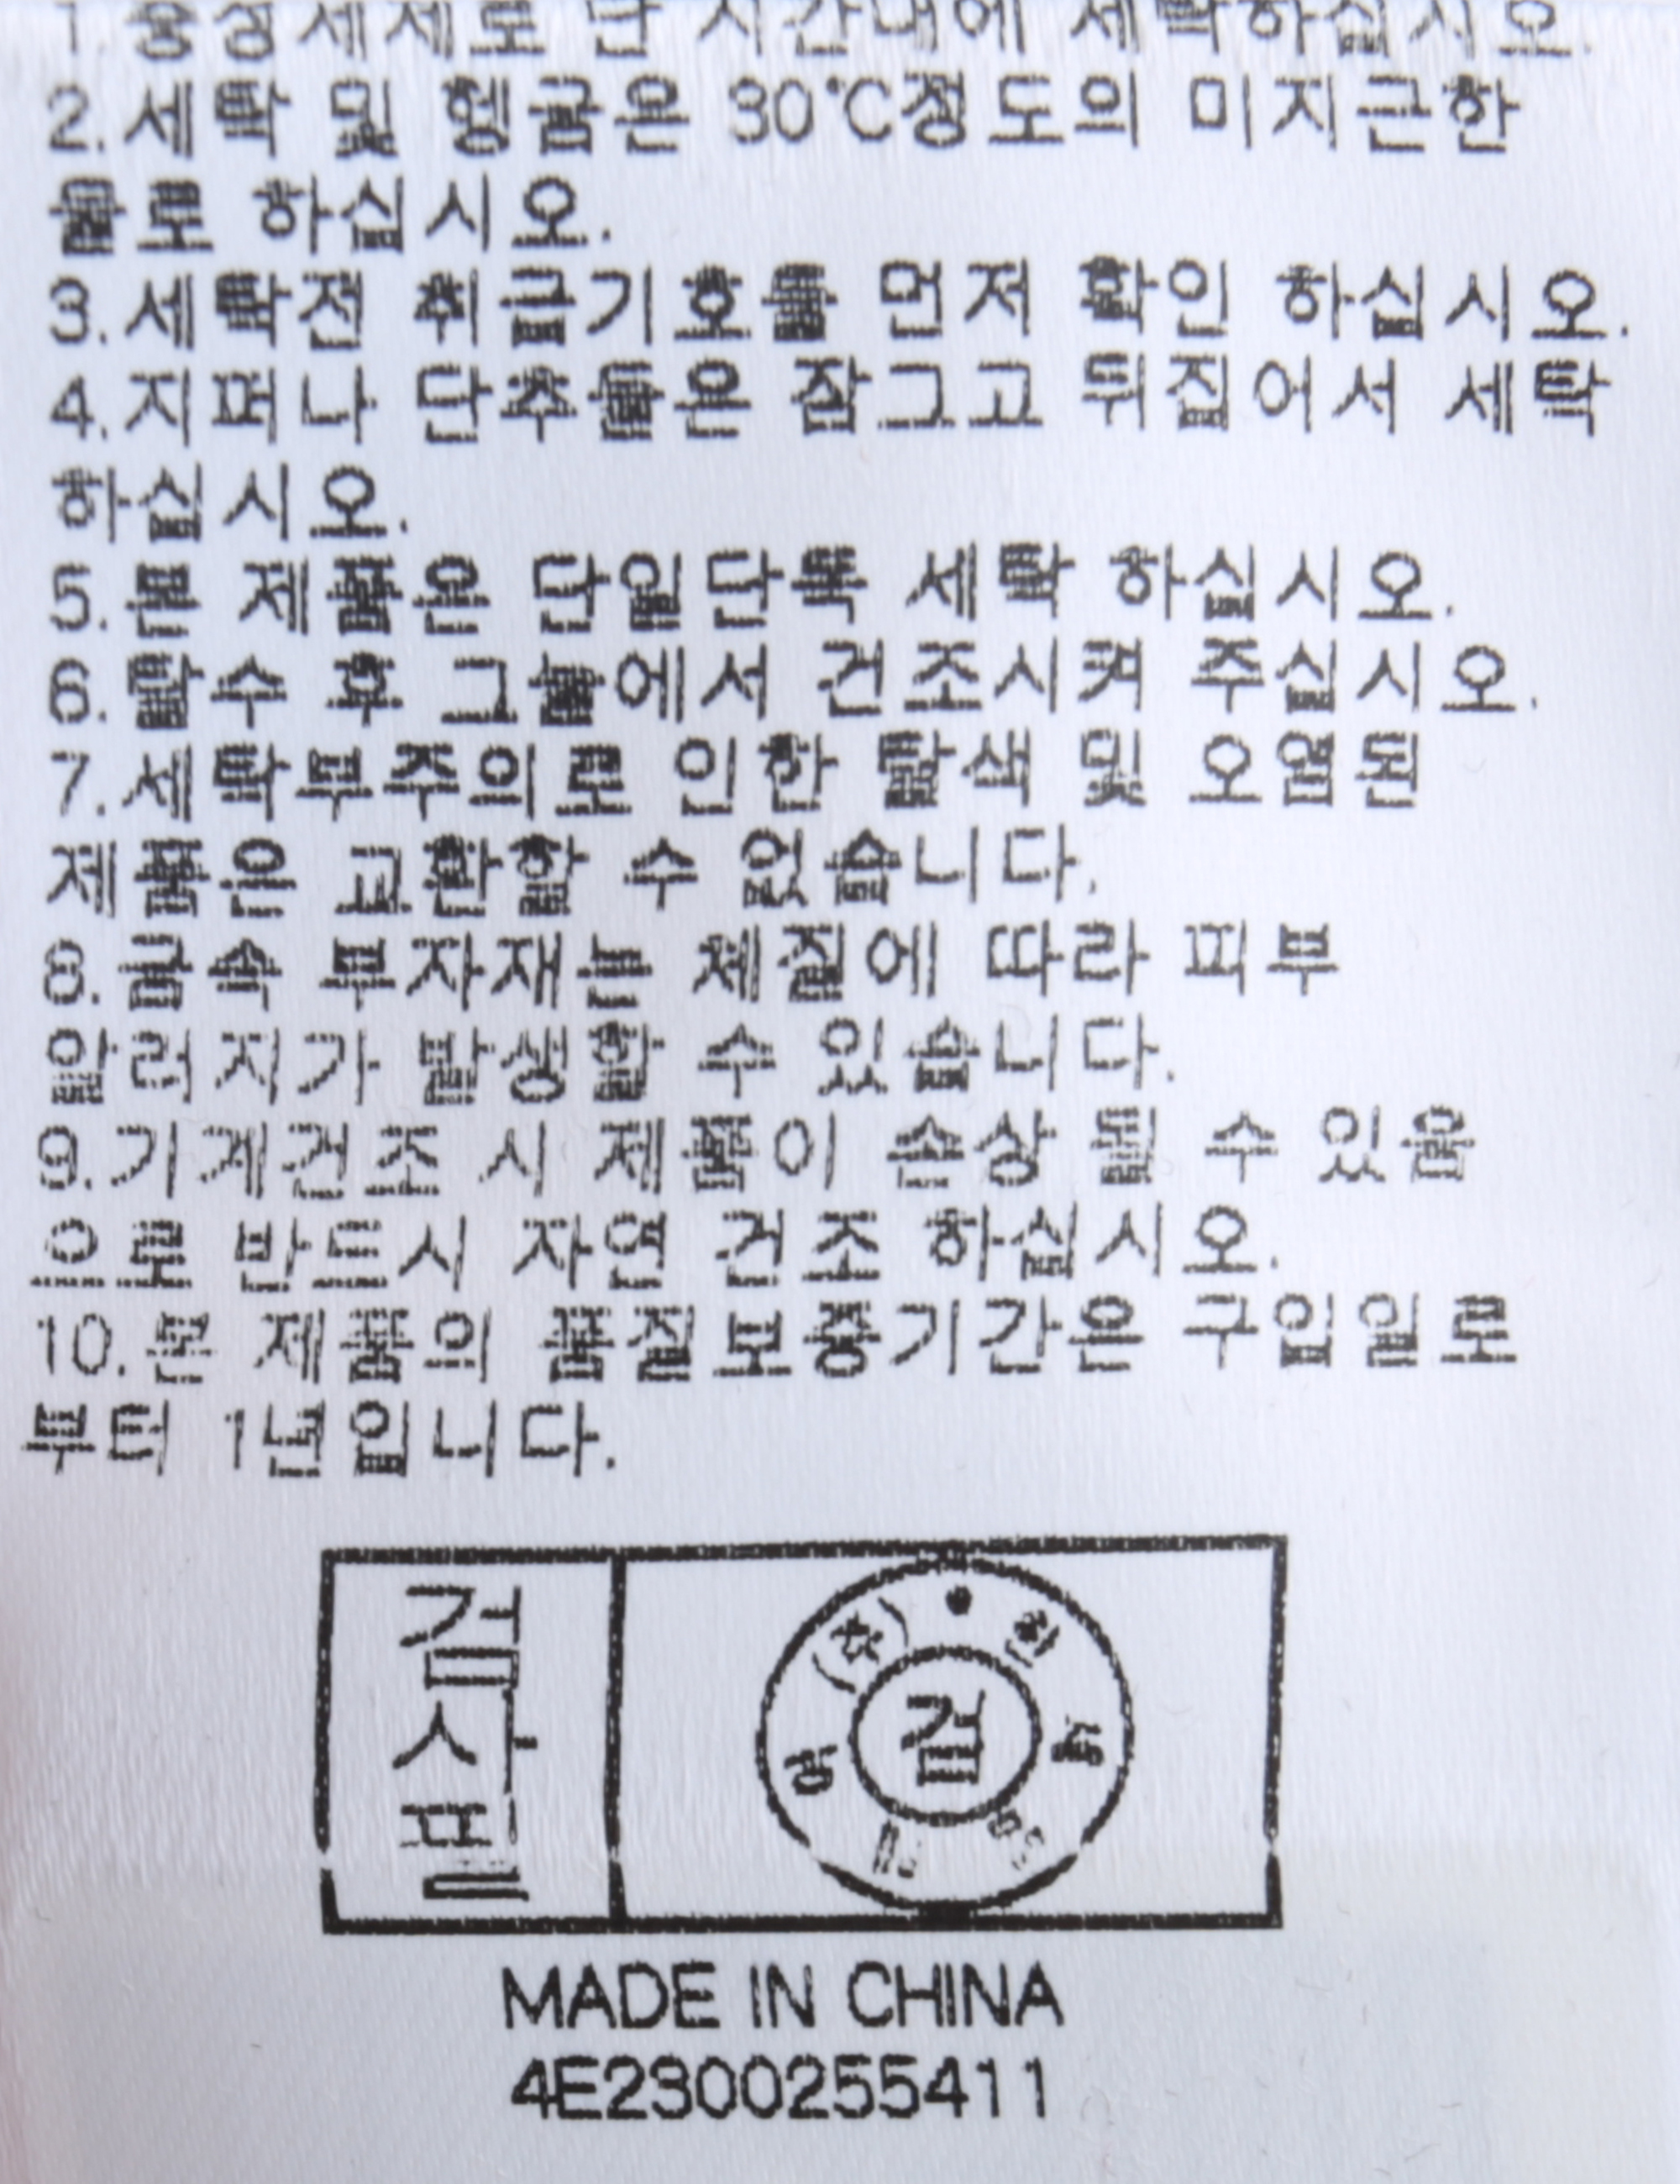 1.중성세제로 단 시간내에 세탁하십시오.
2.세탁 및 헹굼은 30℃정도의 미지근한
물로 하십시오.
3.세탁전 취급기호를 먼저 확인 하십시오.
4.지퍼나 단추들은 잠그고 뒤집어서 세탁
하십시오.
5.본 제품은 단일단독 세탁 하십시오.
6.탈수 후 그늘에서 건조시켜 주십시오.
7.세탁부주의로 인한 탈색 및 오염된
제품은 교환할 수 없습니다.
8.금속 부자재는 체질에 따라 피부
알러지가 발생할 수 있습니다.
9.기계건조 시 제품이 손상 될 수 있음
으로 반드시 자연 건조 하십시오.
10.본 제품의 품질보증기간은 구입일로
부터 1년입니다.
검
사
필
(주)
한
검
MADE IN CHINA
4E2300255411